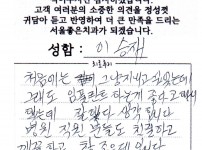 고객 여러분의 소중한 의견을 정성껏
귀담아 듣고 반영하여 더 큰 만족을 드리는
서울좋은치과가 되겠습니다.
성함 : 이승재
처음에는 그냥지나고 싶었는데
그래도 임플란트 하는게 좋다고해서
했는데 잘했다 생각됩니다
병원 직원분들도 친절하고
깨끗하고 참 좋은데입니다